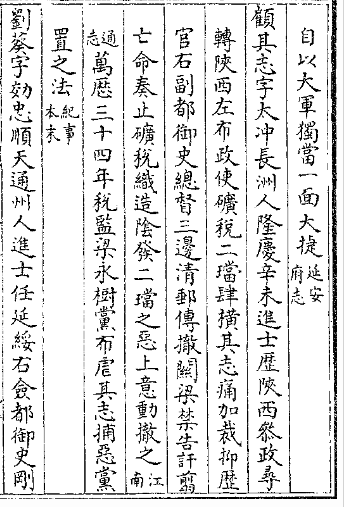 自以大軍獨當一面大捷延安府志
顧其志字太冲長洲人隆慶辛未進士歷陝西叅政尋
轉陝西左布政使礦稅二璫肆橫其志痛加裁抑歷
官右副都御史總督三邊清郵傳撤關梁禁告訐翦
亡命奏止礦稅織造陰發二璫之惡上意動撤之江南
通志萬歷三十四年稅監梁永樹黨布虐其志捕惡黨
置之法紀事本末
劉葵字効忠順天通州人進士任延綏右僉都御史剛